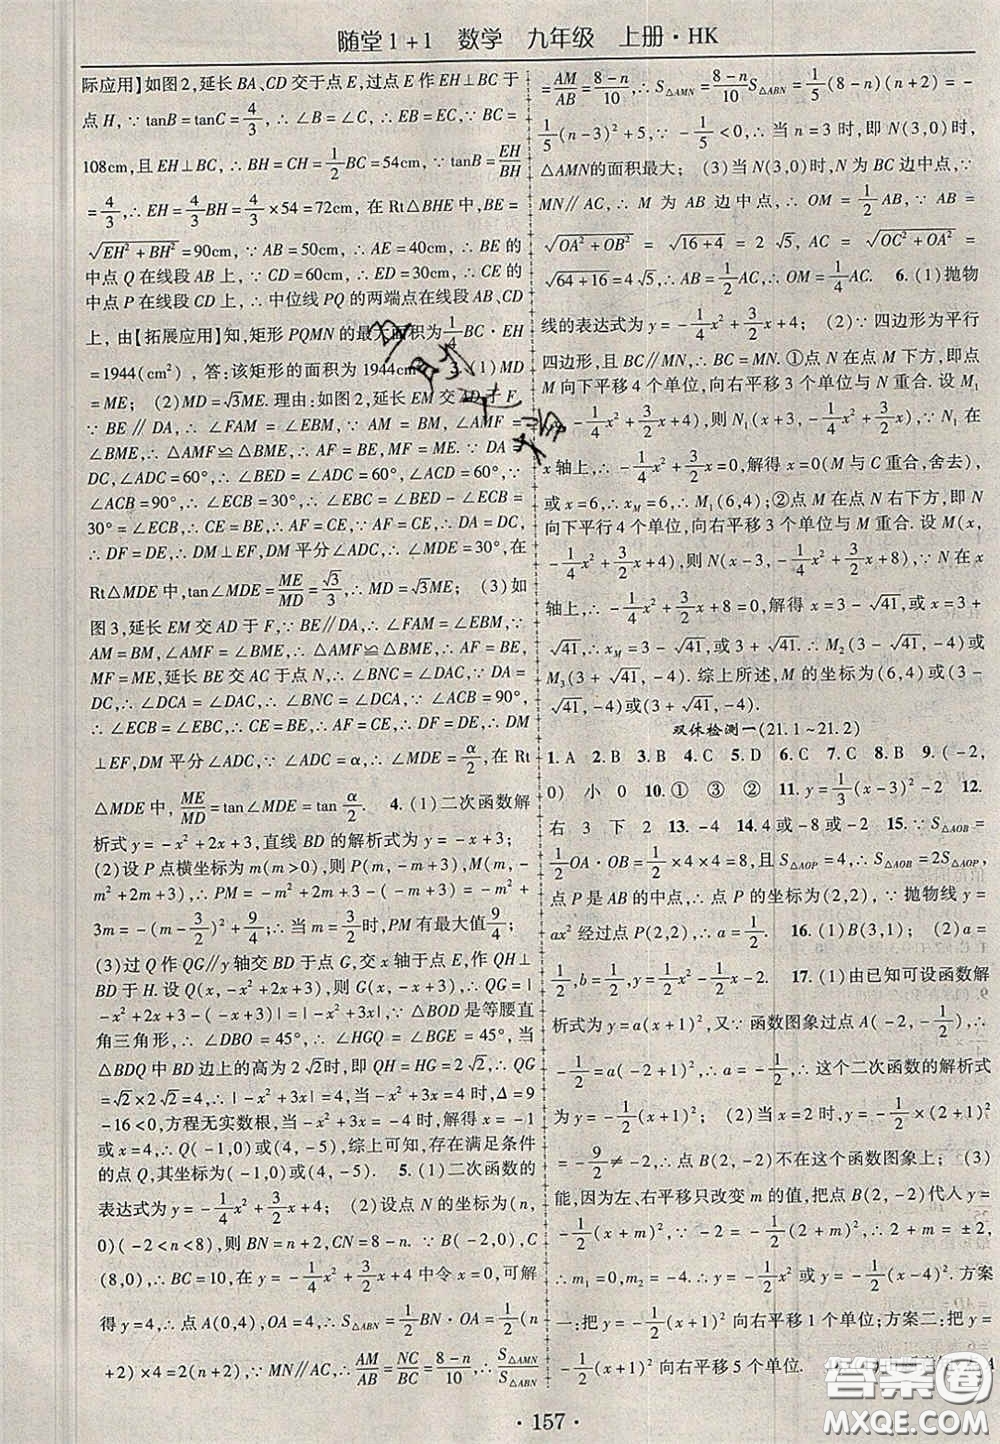 随堂1+1 数学 九年级 上册·HK
际应用】如图2,延长BA、CD交于点E,过点E作EH⊥BC于
点H,∵tanB=tanC=4/3,∴∠B=∠C,∴EB=EC,∵BC=
108cm,且EH⊥BC,∴BH=CH=1/2BC=54cm,∵tanB=EH/BH
=4/3,∴EH=4/3BH=4/3×54=72cm,在Rt△BHE中,BE=
√(EH²+BH²)=90cm,∵AB=50cm,∴AE=40cm,∴BE的
中点Q在线段AB上,∵CD=60cm,∴ED=30cm,∴CE的
中点P在线段CD上,∴中位线PQ的两端点在线段AB、CD
上,由【拓展应用】知,矩形PQMN的最大面积为1/4BC·EH
=1944(cm²),答:该矩形的面积为1944cm². 3.(1)MD
=ME;(2)MD=√3ME.理由:如图2,延长EM交AD于F,
∵BE∥DA,∴∠FAM=∠EBM,∵AM=BM,∠AMF=
∠BME,∴△AMF≌△BME,∴AF=BE,MF=ME.∵DA=
DC,∠ADC=60°,∴∠BED=∠ADC=60°,∠ACD=60°,∵
∠ACB=90°,∴∠ECB=30°,∵∠EBC=∠BED-∠ECB=
30°=∠ECB,∴CE=BE,∴AF=EC,∵DA=DC,
∴DF=DE,∴DM⊥EF,DM平分∠ADC,∴∠MDE=30°,在
Rt△MDE中,tan∠MDE=ME/MD=√3/3,∴MD=√3ME;(3)如
图3,延长EM交AD于F,∵BE∥DA,∴∠FAM=∠EBM,∵
AM=BM,∠AMF=∠BME,∴△AMF≌△BME,∴AF=BE,
MF=ME,延长BE交AC于点N,∴∠BNC=∠DAC,∵DA=
DC,∴∠DCA=∠DAC,∴∠BNC=∠DCA,∵∠ACB=90°,
∴∠ECB=∠EBC,∴CE=BE,∴AF=CE,∴DF=DE,∴DM
⊥EF,DM平分∠ADC,∵∠ADC=α,∴∠MDE=α/2,在Rt
△MDE中,ME/MD=tan∠MDE=tanα/2. 4.(1)二次函数解
析式为y=-x²+2x+3,直线BD的解析式为y=-x+3;
(2)设P点横坐标为m(m>0),则P(m,-m+3),M(m,-
m²+2m+3),∴PM=-m²+2m+3-(-m+3)=-m²+
3m=-(m-3/2)²+9/4;∴当m=3/2时,PM有最大值9/4;
(3)过Q作QG∥y轴交BD于点G,交x轴于点E,作QH⊥
BD于H.设Q(x,-x²+2x+3),则G(x,-x+3),∴QG=|
-x²+2x+3-(-x+3)|=|-x²+3x|,∵△BOD是等腰直
角三角形,∴∠DBO=45°,∴∠HGQ=∠BGE=45°,当
△BDQ中BD边上的高为2√2时,即QH=HG=2√2,∴QG
=√2×2√2=4,∴|-x²+3x|=4,当-x²+3x=4时,Δ=9
-16<0,方程无实数根,当-x²+3x=-4时,解得x=-1
或x=4,∴Q(-1,0)或(4,-5),综上可知,存在满足条件
的点Q,其坐标为(-1,0)或(4,-5). 5.(1)二次函数的
表达式为y=-1/4x²+3/2x+4;(2)设点N的坐标为(n,
0)(-2<n<8),则BN=n+2,CN=8-n.∵B(-2,0),C
(8,0),∴BC=10,在y=-1/4x²+3/2x+4中令x=0,可解
得y=4,∴点A(0,4),OA=4,∴S△ABN=1/2BN·OA=1/2(n
+2)×4=2(n+2),∵MN∥AC,∴AM/AB=NC/BC=(8-n)/10,∴S△AMN/S△ABN
=AM/AB=(8-n)/10,∴S△AMN=(8-n)/10 S△ABN=1/5(8-n)(n+2)=-
1/5(n-3)²+5,∵-1/5<0,∴当n=3时,即N(3,0)时,
△AMN的面积最大;(3)当N(3,0)时,N为BC边中点,∵
MN∥AC,∴M为AB边中点,∴OM=1/2AB,∵AB=
√(OA²+OB²)=√(16+4)=2√5,AC=√(OC²+OA²)=
√(64+16)=4√5,∴AB=1/2AC,∴OM=1/4AC. 6.(1)抛物
线的表达式为y=-1/4x²+3/2x+4;(2)∵四边形为平行
四边形,且BC∥MN,∴BC=MN.①点N在点M下方,即
M向下平移4个单位,向右平移3个单位与N重合.设M₁
(x,-1/4x²+3/2x+4),则N₁(x+3,-1/4x²+3/2x),∵N₁在
x轴上,∴-1/4x²+3/2x=0,解得x=0(M与C重合,舍去),
或x=6,∴xM=6,∴M₁(6,4);②点M在点N右下方,即N
向下平行4个单位,向右平移3个单位与M重合.设M(x,
-1/4x²+3/2x+4),则N(x-3,-1/4x²+3/2x+8),∵N在x
轴上,∴-1/4x²+3/2x+8=0,解得x=3-√41,或x=3
+√41,∴xM=3-√41,或3+√41.∴M₂(3-√41,-4)或
M₃(3+√41,-4).综上所述,M的坐标为(6,4)或(3-
√41,-4)或(3+√41,-4).
双休检测一(21.1~21.2)
1.A 2.B 3.B 4.C 5.D 6.C 7.C 8.B 9.(-2,
0) 小 0 10.① ③ ② 11.y=1/3(x-3)²-2 12.
右 3 下 2 13.-4 14.4或-8或-2 15.∵S△AOB=
1/2OA·OB=1/2×4×4=8,且S△AOP=4,∴S△AOB=2S△AOP,∴
点P是AB的中点,∴点P的坐标为(2,2),∵抛物线y=
ax²经过点P(2,2),∴a=1/2. 16.(1)B(3,1);(2)a=
1/2,b=1/2,y=1/2x²-1/2x-2. 17.(1)由已知可设函数解
析式为y=a(x+1)²,又∵函数图象过点A(-2,-1/2),∴
-1/2=a(-2+1)²,∴a=-1/2,∴这个二次函数的解析式
为y=-1/2(x+1)²;(2)当x=2时,y=-1/2×(2+1)²=
-9/2≠-2,∴点B(2,-2)不在这个函数图象上;(3)
能,因为左、右平移只改变m的值,把点B(2,-2)代人y=
-1/2(x+1+m)²,∵-2=-1/2(2+1+m)²,∴2+1+m=±2,
∴m₁=-1,m₂=-5
=0,m₂=-4.∴y=-1/2x²或y=-1/2(x-4)².∴方案
一:把y=-1/2(x+1)²向右平移1个单位;方案二:把y=
-1/2(x+1)²向右平移5个单位.
·157·
答案圈
MXQE.COM